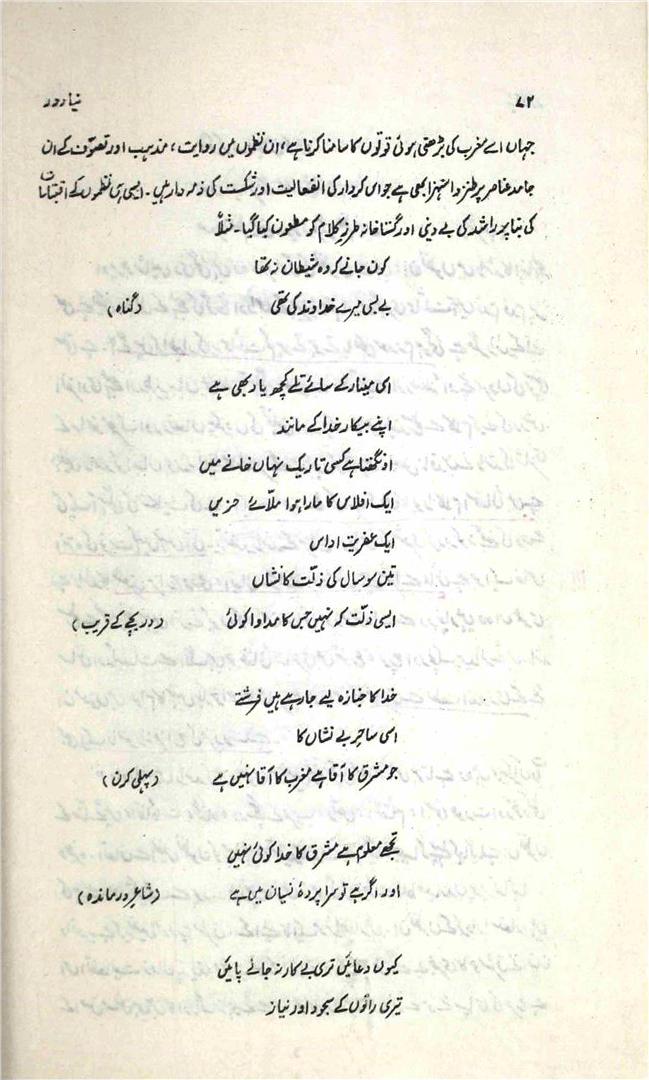 ۷۲ نیا دور
جہاں اسے مغرب کی بڑھتی ہوئی قوتوں کا سامنا کرنا ہے، ان نظموں میں روایت، مذہب اور تصوّف کے ان
جامد عناصر پر طنز و استہزا بھی ہے جو اس کردار کی انفعالیت اور شکست کی ذمہ دار ہیں۔ ایسی ہی نظموں کے اقتباسات
کی بنا پر راشد کی بے دینی اور گستاخانہ طرزِ کلام کو مطعون کیا گیا۔ مثلاً
کون جانے کہ وہ شیطان نہ تھا
بے بسی میرے خداوند کی تھی (گناہ)
اسی مینار کے سائے تلے کچھ یاد بھی ہے
اپنے بیکار خدا کے مانند
اونگھتا ہے کسی تاریک نہاں خانے میں
ایک افلاس کا مارا ہوا ملّائے حزیں
ایک عفریت اداس
تین سو سال کی ذلّت کا نشاں
ایسی ذلّت کہ نہیں جس کا مداوا کوئی (دریچے کے قریب)
خدا کا جنازہ لیے جا رہے ہیں فرشتے
اسی ساحرِ بے نشاں کا
جو مشرق کا آقا ہے مغرب کا آقا نہیں ہے (پہلی کرن)
تجھے معلوم ہے مشرق کا خدا کوئی نہیں
اور اگر ہے تو سرا پردۂ نسیان میں ہے (شاعرِ درماندہ)
کیوں دعائیں تری بے کار نہ جانے پائیں
تیری راتوں کے سجود اور نیاز